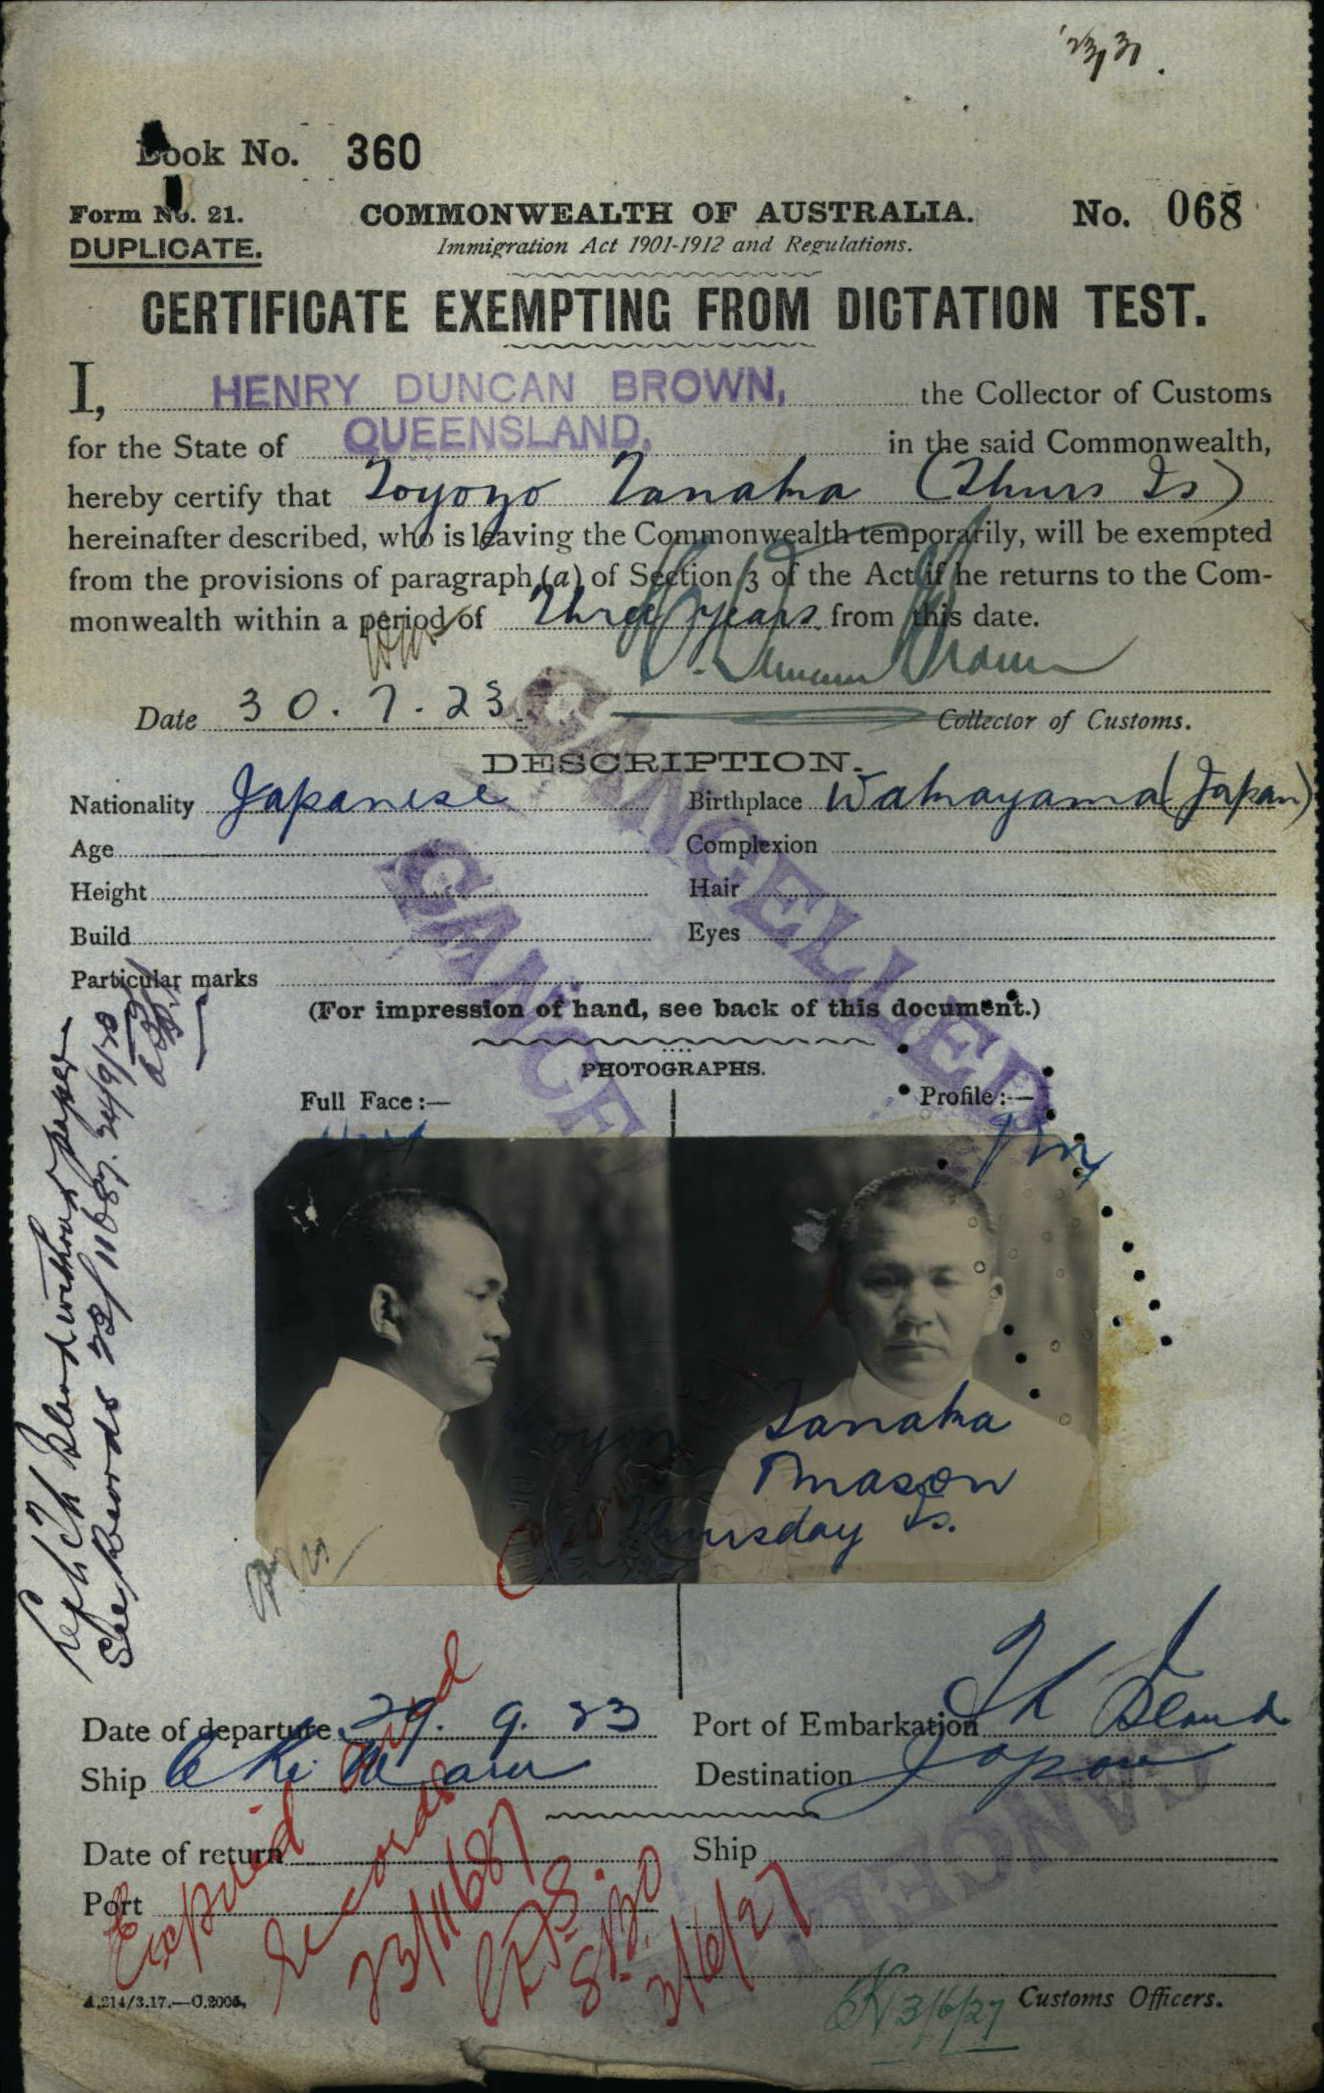 '23/31.
Book No. 360
Form No. 21. COMMONWEALTH OF AUSTRALIA. No. 068
DUPLICATE. Immigration Act 1901-1912 and Regulations.
CERTIFICATE EXEMPTING FROM DICTATION TEST.
I, HENRY DUNCAN BROWN, the Collector of Customs
for the State of QUEENSLAND, in the said Commonwealth,
hereby certify that Toyozo Tanaka (Thurs Is)
hereinafter described, who is leaving the Commonwealth temporarily, will be exempted
from the provisions of paragraph (a) of Section 3 of the Act if he returns to the Com-
monwealth within a period of three years from this date.
H. Duncan Brown
Date 30.7.23. Collector of Customs.
CANCELLED
DESCRIPTION.
Nationality Japanese Birthplace Wakayama (Japan)
Age Complexion
Height Hair
Build Eyes
Particular marks
CANCE
(For impression of hand, see back of this document.)
PHOTOGRAPHS.
Full Face:— Profile:—
Tanaka
Thursday Is.
Left Th Island without paper
See Records 23/11687. 24/9/23
Date of departure 29.9.23 Port of Embarkation Th Island
Ship Aki Maru Destination Japan
CANCEL
Date of return Ship
Port
Expired and
records
23/11687
3/6/27
3/6/27 Customs Officers.
A.214/3.17.—C.2005.